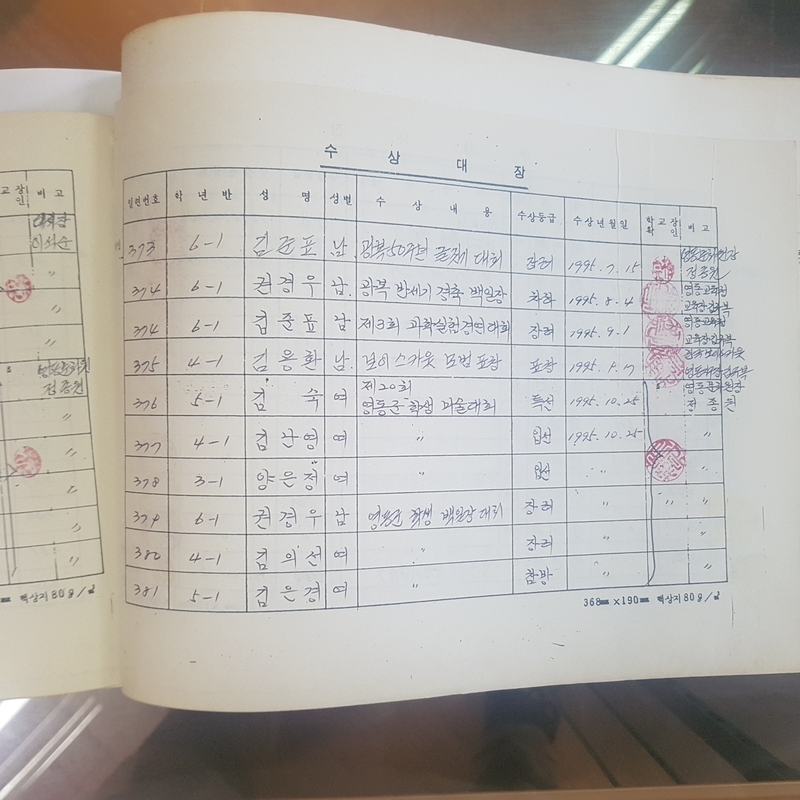 교장인 비고
이외순
〃
정종원
〃
〃
〃
백상지 80g/㎡
수상대장
일련번호 학년반 성명 성별 수상내용 수상등급 수상년월일 학교장확인 비고
373 6-1 김준표 남 광복50주년 글짓기 대회 장려 1995.7.15 정종원
374 6-1 권경우 남. 광복 반세기 경축 백일장 차하 1995.8.4 영동교육청
374 6-1 김준표 남 제3회 과학실험경연대회 장려 1995.9.1 영동교육청
375 4-1 김응환 남. 보이스카웃 모범 포장 포장
376 5-1 김숙 여 제20회 영동군 학생 미술대회 특선 1995.10.25 영동문화원장 정종원
377 4-1 김난영 여 〃 입선 1995.10.25 〃
378 3-1 양은정 여 〃 입선 〃 〃
379 6-1 권경우 남 영동군 학생 백일장 대회 장려 〃 〃 〃
380 4-1 김의선 여 〃 장려 〃 〃
381 5-1 김은경 여 〃 참방 〃 〃
368㎜×190㎜ 백상지 80g/㎡